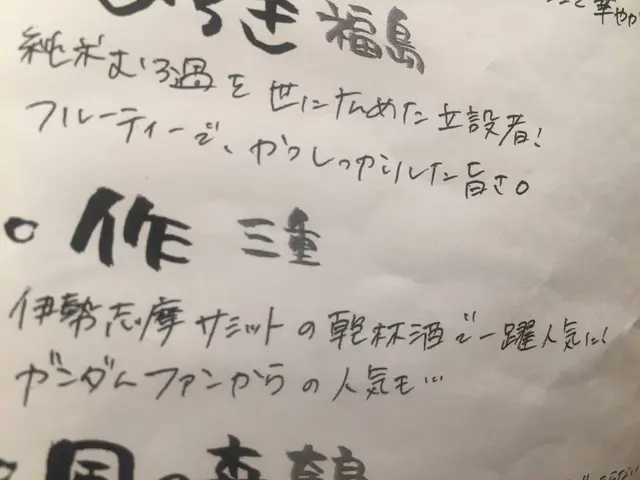 福島
純米むろ過を世に広めた立設者!
フルーティーで、かつしっかりした旨さ。
○ 作 三重
伊勢志摩サミットの乾杯酒で一躍人気に!
ガンダムファンからの人気も…